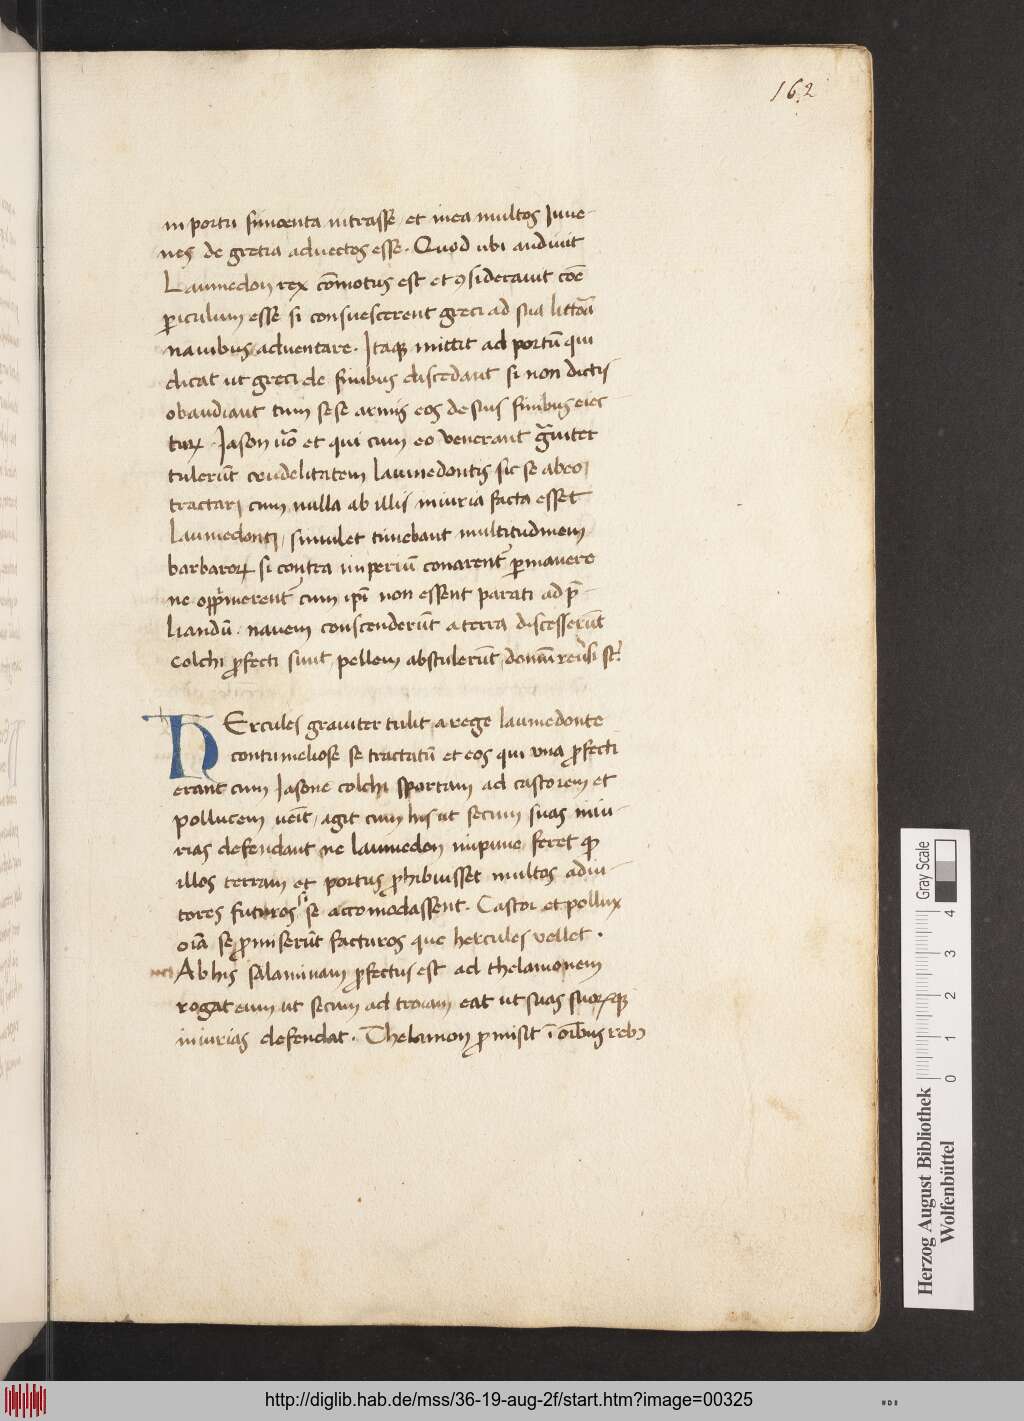 162
in portu simoenta intrasse et in ea multos Juue-
nes de gretia aduectos esse. Quod ubi audiuit
Laumedon rex cōmotus est et ꝯsiderauit cōe
ꝑiculum esse si consuescerent greci ad sua littoā
nauibus aduentare. Itaqꝫ mittit ad portū qui
dicat ut greci de finibus discedant si non dictis
obaudiant tum sese armis eos de suis finibus eiec
turꝝ. Jason ūo et qui cum eo venerant gͣuiter
tulerūt crudelitatem laumedontis sic se ab eo
tractari cum nulla ab illis iniuria facta esset
Laumedonti, simulet timebant multitudinem
barbaroꝝ si contra imperiū conarent̉ ꝑmanere
ne opp̄merent̉ cum ip̄i non essent parati ad p̄-
liandū. nauem conscenderūt a terra discesserūt
colchi ꝓfecti sunt pellem abstulerūt, domū reūsi st̄.
HErcules grauiter tulit a rege laumedonte
contumeliose se tractatū et eos qui vna ꝓfecti
erant cum Jasone colchi sportam ad castorem et
pollucem ueīt, agit cum his ut secum suas iniu-
rias defendant ne laumedon impune feret qꝫ
illos terram et portus ꝓhibuisset multos adiu-
tores futuros si se accomodassent. Castor et pollux
oīa se ꝓmiserūt facturos que hercules vellet.
Ab his salaminam ꝓfectus est ad thelamonem
rogat eum ut secum ad troiam eat ut suas suoꝝqꝫ
iniurias defendat. Thelamon ꝓmisit ī oībus rebꝫ
Gray Scale
0 1 2 3 4
Herzog August Bibliothek
Wolfenbüttel
http://diglib.hab.de/mss/36-19-aug-2f/start.htm?image=00325